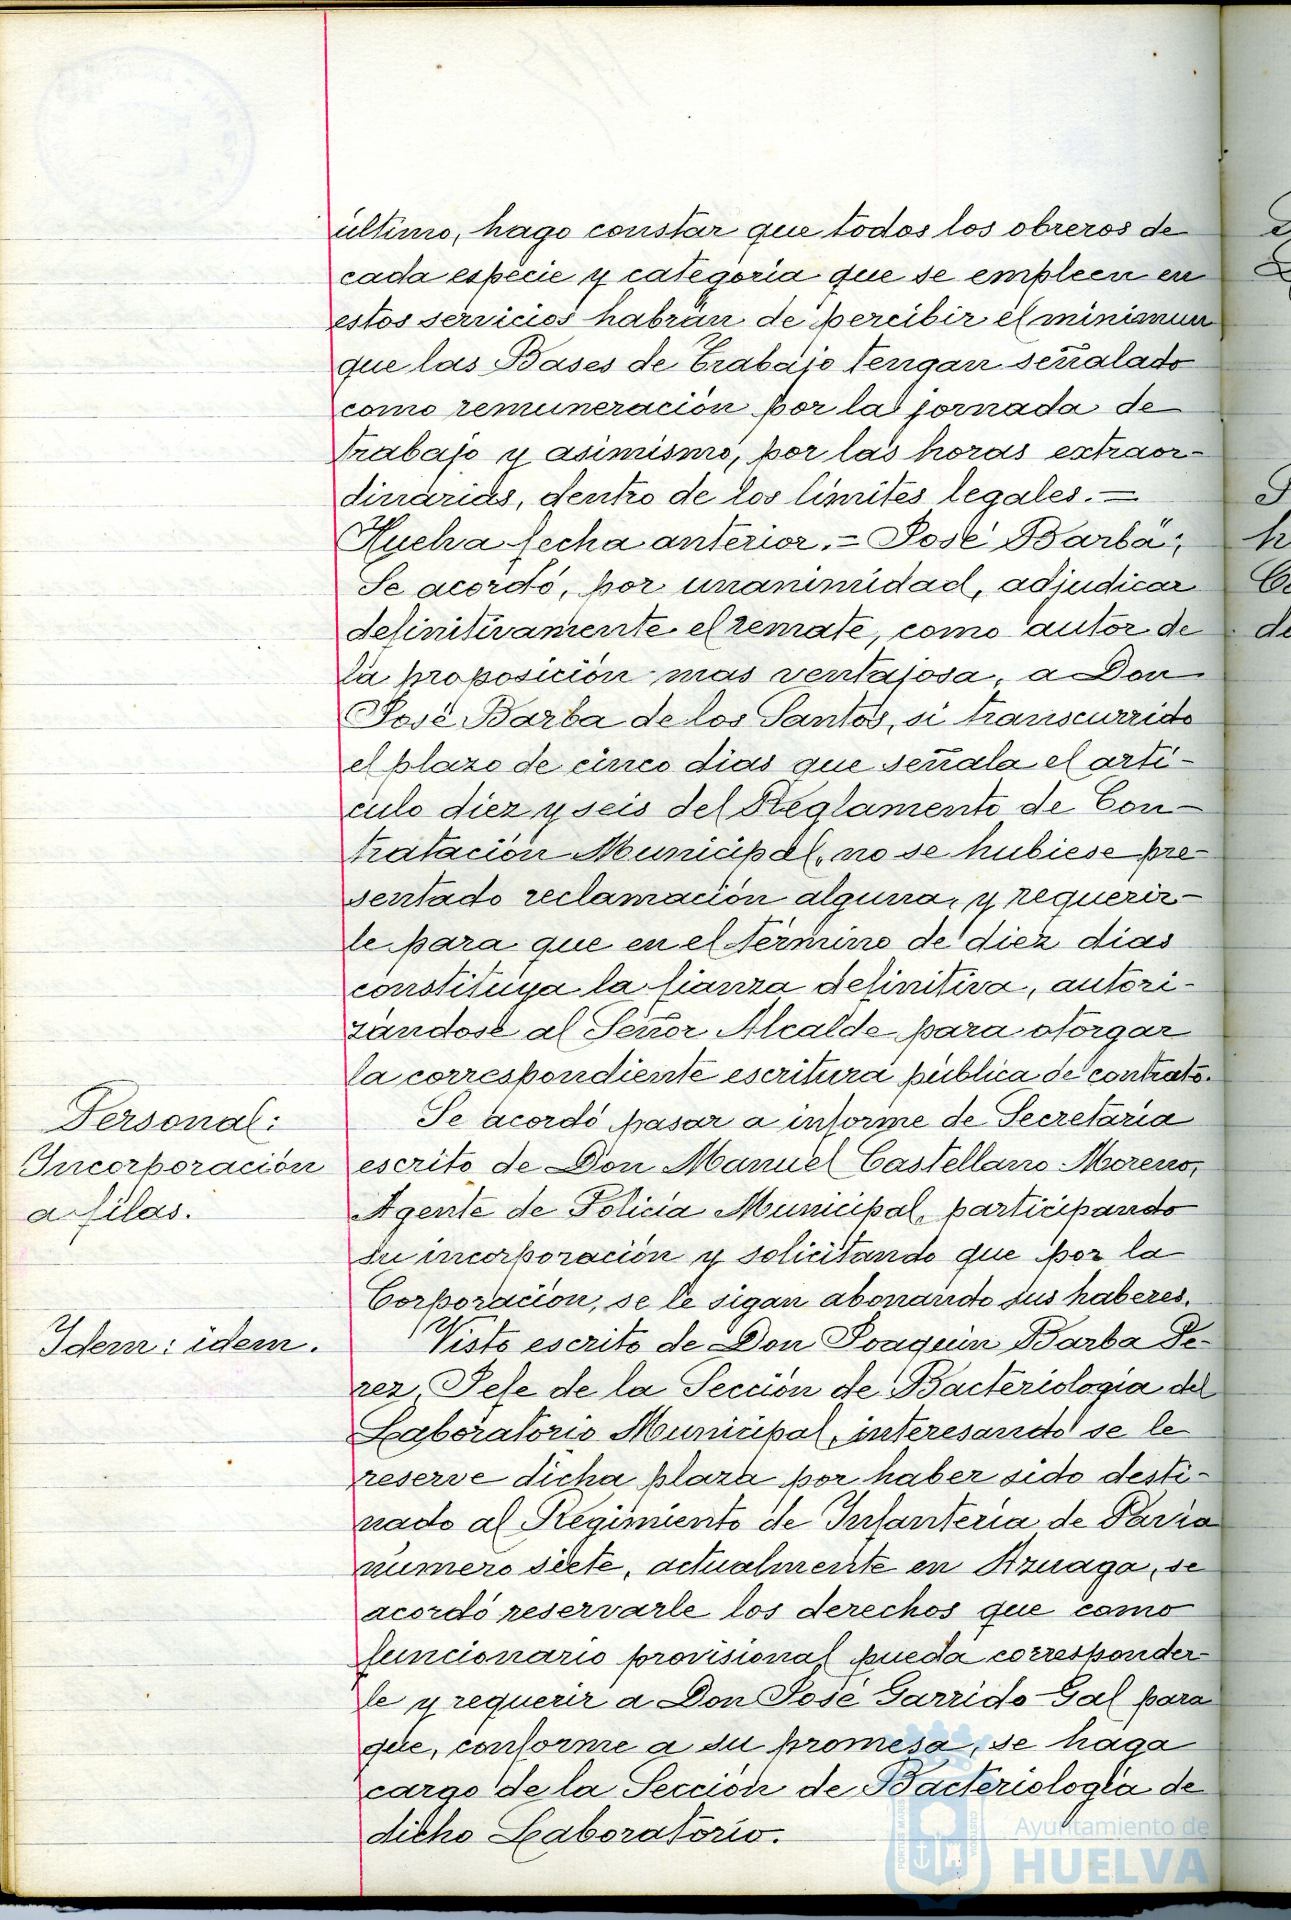 último, hago constar que todos los obreros de
cada especie y categoria que se empleen en
estos servicios habrán de percibir el minimun
que las Bases de Trabajo tengan señalado
como remuneración por la jornada de
trabajo y asimismo, por las horas extraor-
dinarias, dentro de los límites legales.=
Huelva fecha anterior.= José Barba";
Se acordó, por unanimidad, adjudicar
definitivamente el remate, como autor de
la proposición mas ventajosa, a Don
José Barba de los Santos, si transcurrido
el plazo de cinco dias que señala el artí-
culo diez y seis del Reglamento de Con-
tratación Municipal, no se hubiese pre-
sentado reclamación alguna, y requerir-
le para que en el término de diez dias
constituya la fianza definitiva, autori-
zándose al Señor Alcalde para otorgar
la correspondiente escritura pública de contrato.
Personal:
Incorporación
a filas.
Se acordó pasar a informe de Secretaría
escrito de Don Manuel Castellano Moreno,
Agente de Policía Municipal, participando
su incorporación y solicitando que por la
Corporación, se le sigan abonando sus haberes.
Idem: idem.
Visto escrito de Don Joaquin Barba Pe-
rez, Jefe de la Sección de Bacteriología del
Laboratorio Municipal, interesando se le
reserve dicha plaza por haber sido desti-
nado al Regimiento de Infantería de Pavia
número siete, actualmente en Azuaga, se
acordó reservarle los derechos que como
funcionario provisional pueda corresponder-
le y requerir a Don José Garrido Gal para
que, conforme a su promesa, se haga
cargo de la Sección de Bacteriología de
dicho Laboratorio.
Ayuntamiento de
HUELVA